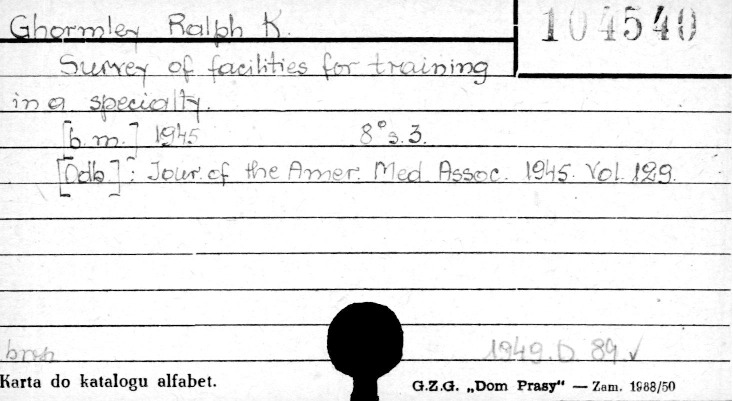 Ghormley Ralph K. 104540
Survey of facilities for training
in a specialty.
[b.m.] 1945 8° s. 3.
[Odb.]: Jour. of the Amer. Med. Assoc. 1945. Vol. 129.
brosz 1949. D. 89 √
Karta do katalogu alfabet. G.Z.G. „Dom Prasy“ — Zam. 1988/50